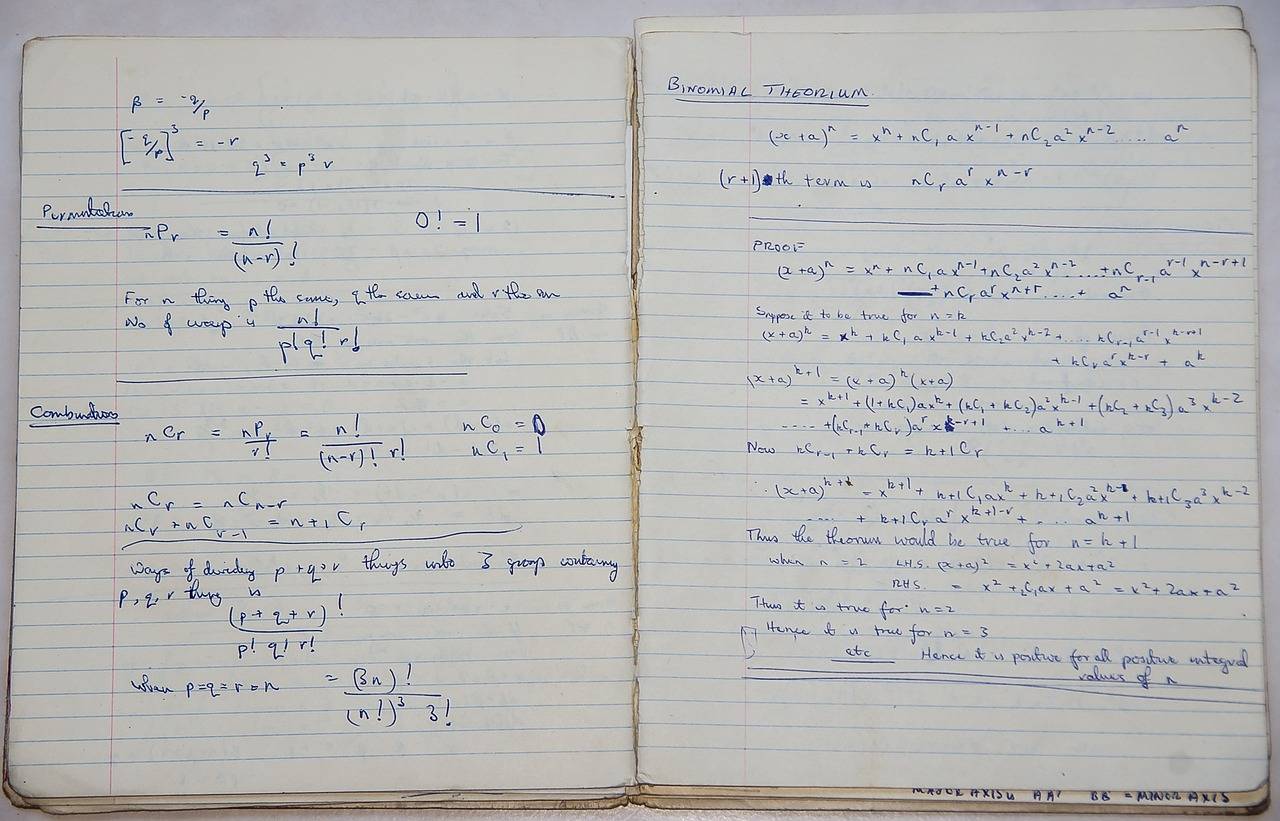 β = -q/p
[-q/p]³ = -r
q³ = p³ r
Permutations
nPr = n!/(n-r)!    0! = 1
For n thing p the same, q the same and r the sm
No of ways is n!/p! q! r!
Combinations
nCr = nPr/r! = n!/(n-r)! r!    nC₀ = 0
nC₁ = 1
nCr = nCn-r
nCr + nCr-1 = n+1 Cr
Ways of dividing p+q+r things into 3 group containing
p, q, r thing is
(p+q+r)!/p! q! r!
when p=q=r=n = (3n)!/(n!)³ 3!
BINOMIAL THEORIUM
(x+a)ⁿ = xⁿ + nC₁ a xⁿ⁻¹ + nC₂ a² xⁿ⁻² ..... aⁿ
(r+1)th term is nCr aʳ xⁿ⁻ʳ
PROOF
(x+a)ⁿ = xⁿ + nC₁ a xⁿ⁻¹ + nC₂ a² xⁿ⁻² ..... + nCr-1 aʳ⁻¹ xⁿ⁻ʳ⁺¹
+ nCr aʳ xⁿ⁺ʳ ..... + aⁿ
Suppose it to be true for n=k
(x+a)ᵏ = xᵏ + kC₁ a xᵏ⁻¹ + kC₂ a² xᵏ⁻² + ..... kCr-1 aʳ⁻¹ xᵏ⁻ʳ⁺¹
+ kCr aʳ xᵏ⁻ʳ + aᵏ
(x+a)ᵏ⁺¹ = (x+a)ᵏ (x+a)
= xᵏ⁺¹ + (1+kC₁) a xᵏ + (kC₁ + kC₂) a² xᵏ⁻¹ + (kC₂ + kC₃) a³ xᵏ⁻²
---- + (kCr-1 + kCr) aʳ xᵏ⁻ʳ⁺¹ + ... aᵏ⁺¹
Now kCr-1 + kCr = k+1 Cr
∴ (x+a)ᵏ⁺¹ = xᵏ⁺¹ + k+1C₁ a xᵏ + k+1C₂ a² xᵏ⁻¹ + k+1C₃ a³ xᵏ⁻²
---- + k+1Cr aʳ xᵏ⁺¹⁻ʳ + .... aᵏ⁺¹
Thus the theorum would be true for n = k+1
when n = 2 L.H.S. (x+a)² = x² + 2ax + a²
RHS. = x² + ₂C₁ax + a² = x² + 2ax + a²
Thus it is true for n=2
Hence it is true for n = 3
etc Hence it is positive for all positive integral
values of n
MAJOR AXIS is AA' BB' = MINOR AXIS